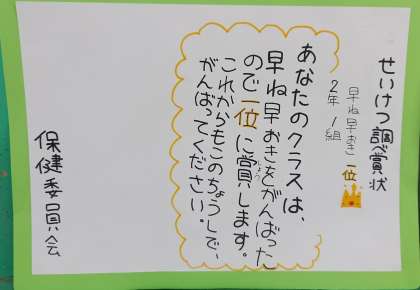 せいけつ調べ賞状
早ね早おき 一位
2年1組
あなたのクラスは、
早ね早おきをがんばった
ので一位に賞します。
これからもこのちょうしで、
がんばってください。
保健委員会